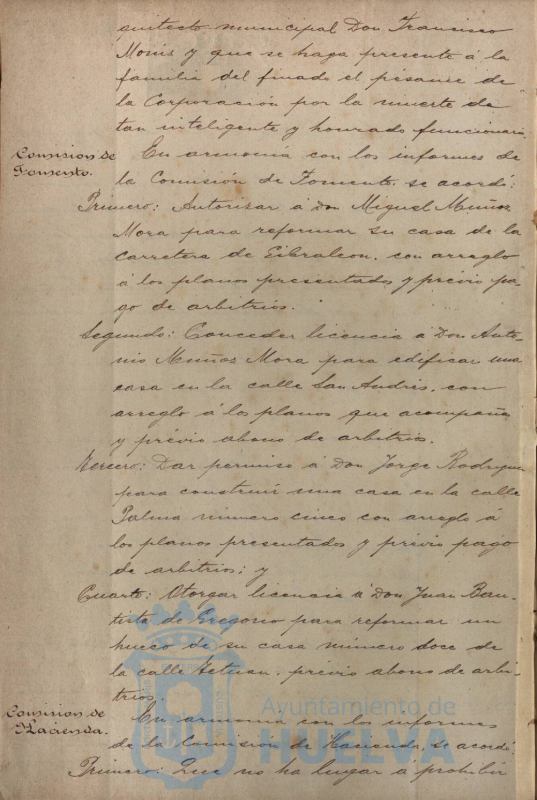 quitecto municipal Don Francisco
Monís y que se haga presente á la
familia del finado el pésame de
la Corporación por la muerte de
tan inteligente y honrado funcionario.
Comision de
Fomento.
En armonía con los informes de
la Comisión de Fomento, se acordó:
Primero: Autorisar á Don Miguel Muñoz
Mora para reformar su casa de la
carretera de Gibraleon, con arreglo
á los planos presentados y prévio pa-
go de arbitrios.
Segundo: Conceder licencia á Don Anto-
nio Muñoz Mora para edificar una
casa en la calle San Andrés, con
arreglo á los planos que acompaña
y prévio abono de arbitrios.
Tercero: Dar permiso á Don Jorge Rodriguez
para construir una casa en la calle
Palma número cinco con arreglo á
los planos presentados y prévio pago
de arbitrios; y
Cuarto: Otorgar licencia á Don Juan Bau-
tista de Gregorio para reformar un
hueco de su casa número doce de
la calle Tetuan, prévio abono de arbi-
trios.
Comision de
Hacienda.
En armonía con los informes
de la Comisión de Hacienda, se acordó:
Primero: Que no ha lugar á prohibir
Ayuntamiento de
HUELVA